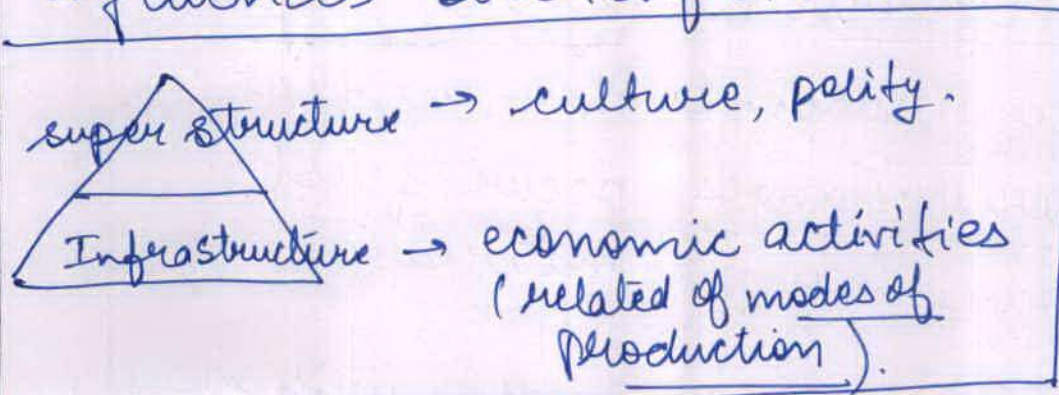 super structure → culture, polity.
Infrastructure → economic activities
(related of modes of
production).